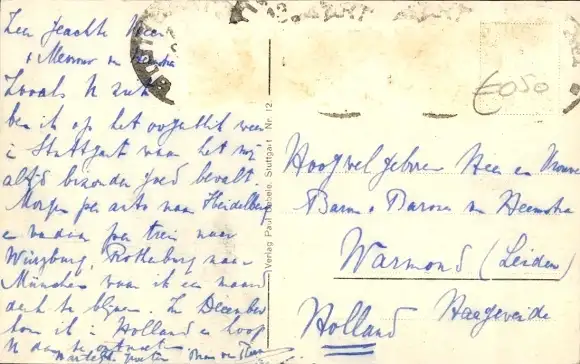 Zeer geachte Heer
& Mevrouw van Heemstra
Zooals U ziet
ben ik op het oogenblik weer
in Stuttgart waar het mij
altijd bizonder goed bevalt.
Morgen per auto naar Heidelberg
en vandaar per trein naar
Würzburg, Rothenburg naar
München waar ik een maand
denk te blijven. In December
kom ik in Holland en hoop
U dan te ontmoeten
Verlag Paul Stuttgart Nr. 12
€050
Hoogwelgeboren Heer en Mevrouw
Baron & Barones van Heemstra
Warmond (Leiden)
Haageveide
Holland